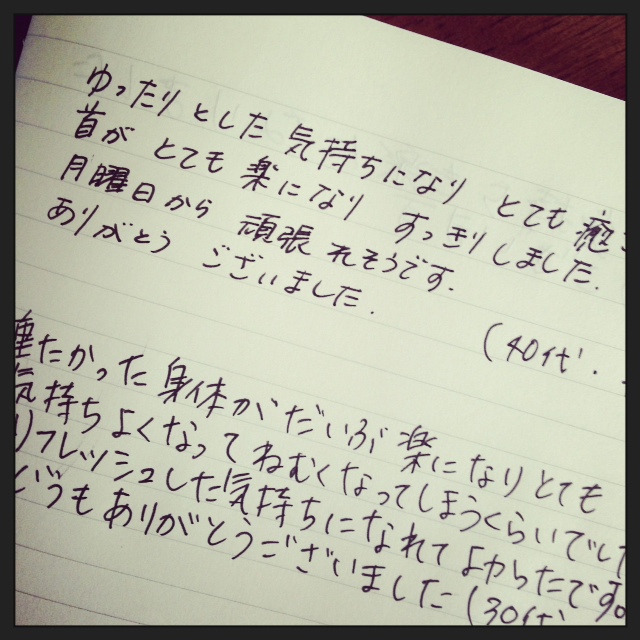 ゆったりとした 気持ちになり とても 癒
首が とても 楽になり すっきりしました.
月曜日から 頑張れそうです.
ありがとう ございました.
(40代.
重たかった 身体がだいぶ 楽になりとても
気持ちよくなって ねむくなってしまうくらいでし
リフレッシュした気持ちになれて よかったです。
どうもありがとうございました(30代